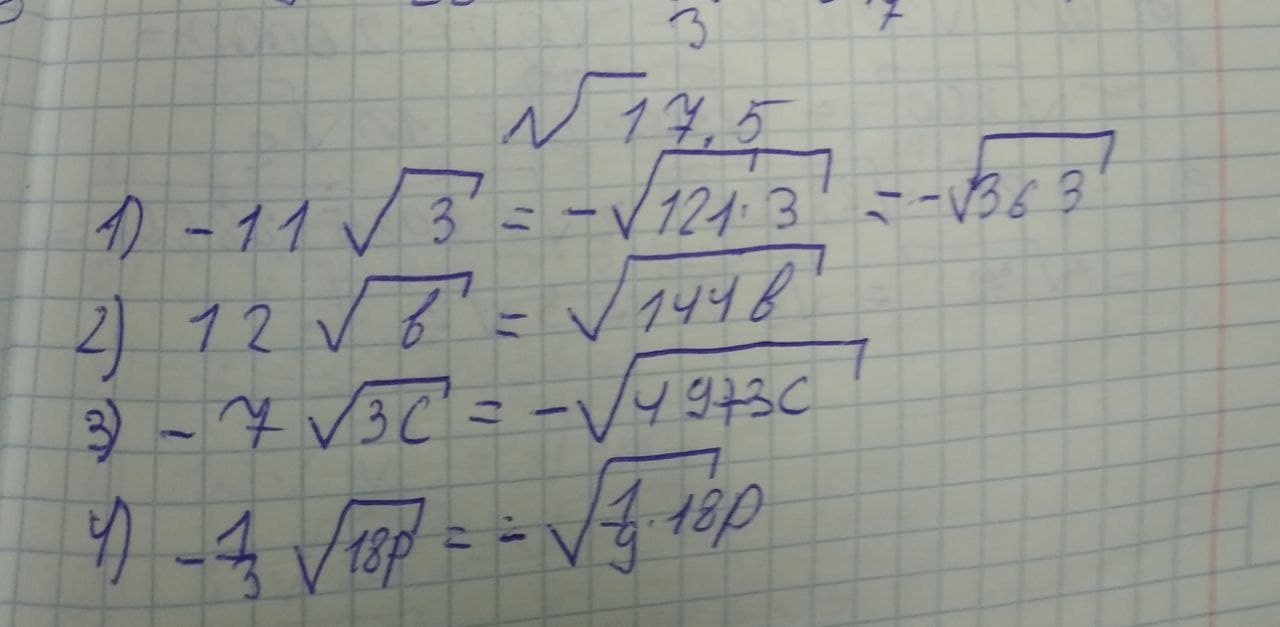 3 7
√17,5
1) -11√3 = -√121·3 = -√363
2) 12√в = √144в
3) -7√3c = -√49+3c
4) -1/3√18p = -√1/9·18p